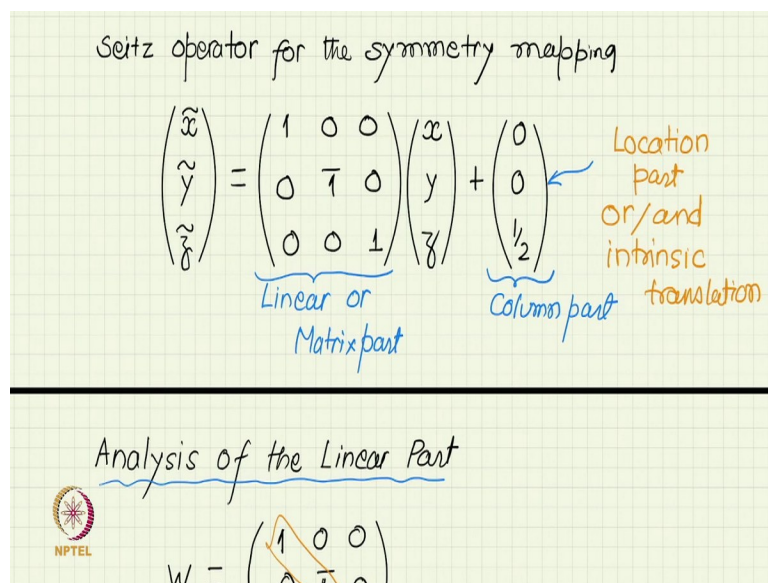 Seitz operator for the symmetry mapping
(x̃) = (1 0 0) (x) + (0)
(ỹ) (0 1̄ 0) (y) (0)
(z̃) (0 0 1) (z) (1/2)
Linear or
Matrix part
Column part
Location
part
or/and
intrinsic
translation
Analysis of the Linear Part
W = (1 0 0)
(0 1̄ 0)
NPTEL